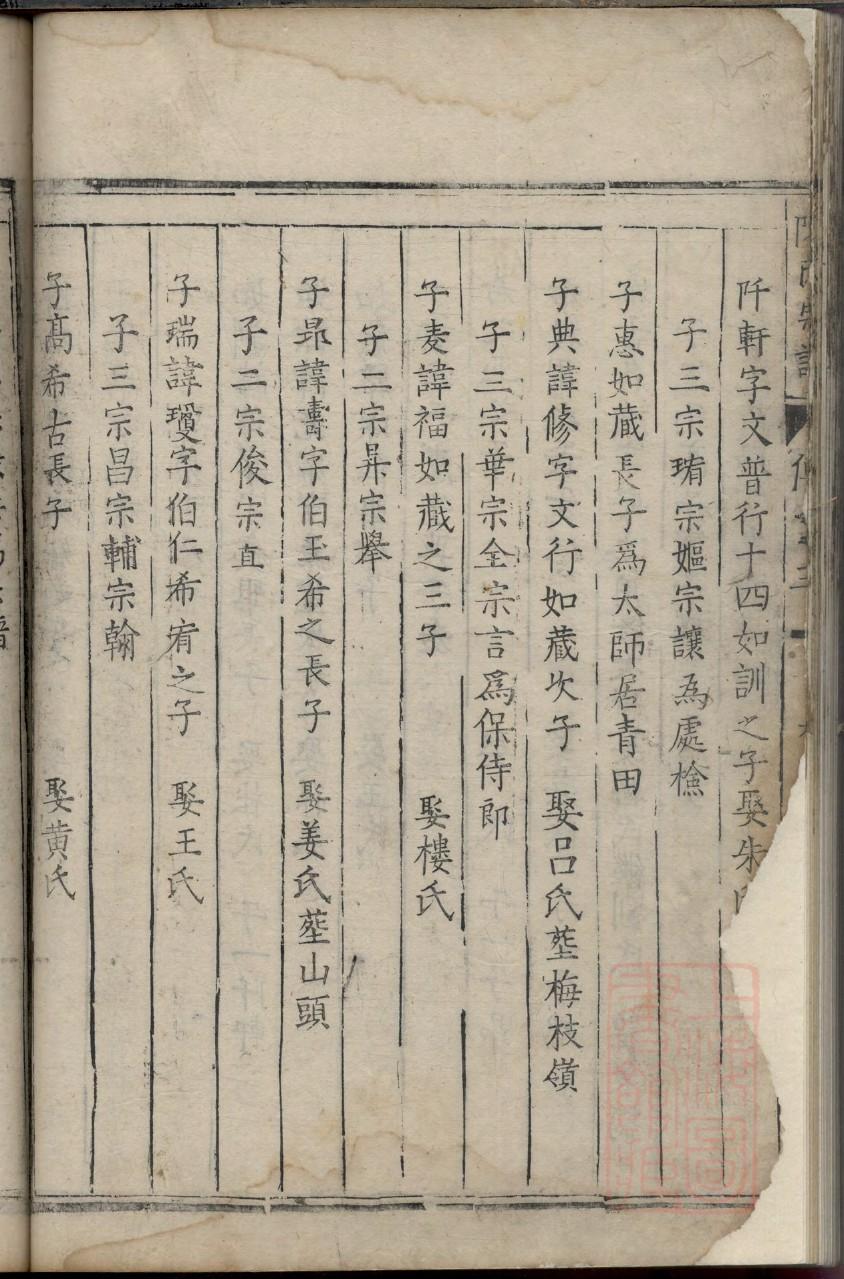 阡軒字文普行十四如訓之子娶朱
子三宗琇宗嫗宗讓為處檢
子惠如蔵長子爲太師居青田
子典諱修字文行如蔵次子 娶呂氏塟梅枝嶺
子三宗華宗全宗言爲保侍郎
子麦諱福如蔵之三子 娶樓氏
子二宗昇宗舉
子昴諱壽字伯玉希之長子 娶姜氏塟山頭
子二宗俊宗直
子瑞諱瓊字伯仁希宥之子 娶王氏
子三宗昌宗輔宗翰
子髙希古長子 娶黄氏